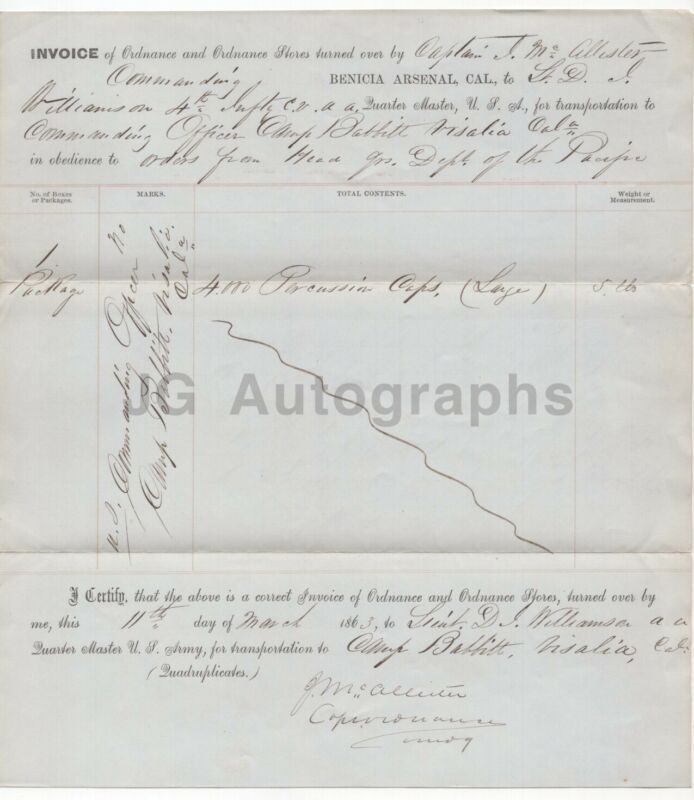 INVOICE of Ordnance and Ordnance Stores turned over by Captain J. McAllister
Commanding BENICIA ARSENAL, CAL., to Lt. D. J.
Williamson 4th Infty C.V. a a Quarter Master, U. S. A., for transportation to
Commanding Officer Camp Babbitt Visalia Cala
in obedience to orders from Head Qrs. Dept. of the Pacific
No. of Boxes or Packages. MARKS. TOTAL CONTENTS. Weight or Measurement.
1
Package
U.S. Commanding Officer No
Camp Babbitt, Visalia.
Cala
4.000 Percussion Caps, (Large) 5 lbs
JG Autographs
I Certify, that the above is a correct Invoice of Ordnance and Ordnance Stores, turned over by
me, this 11th day of March 1863, to Lieut D. J. Williamson a a
Quarter Master U. S. Army, for transportation to Camp Babbitt, Visalia, Cal.
(Quadruplicates.)
J. McAllister
Capt. Ordnance
Comdg